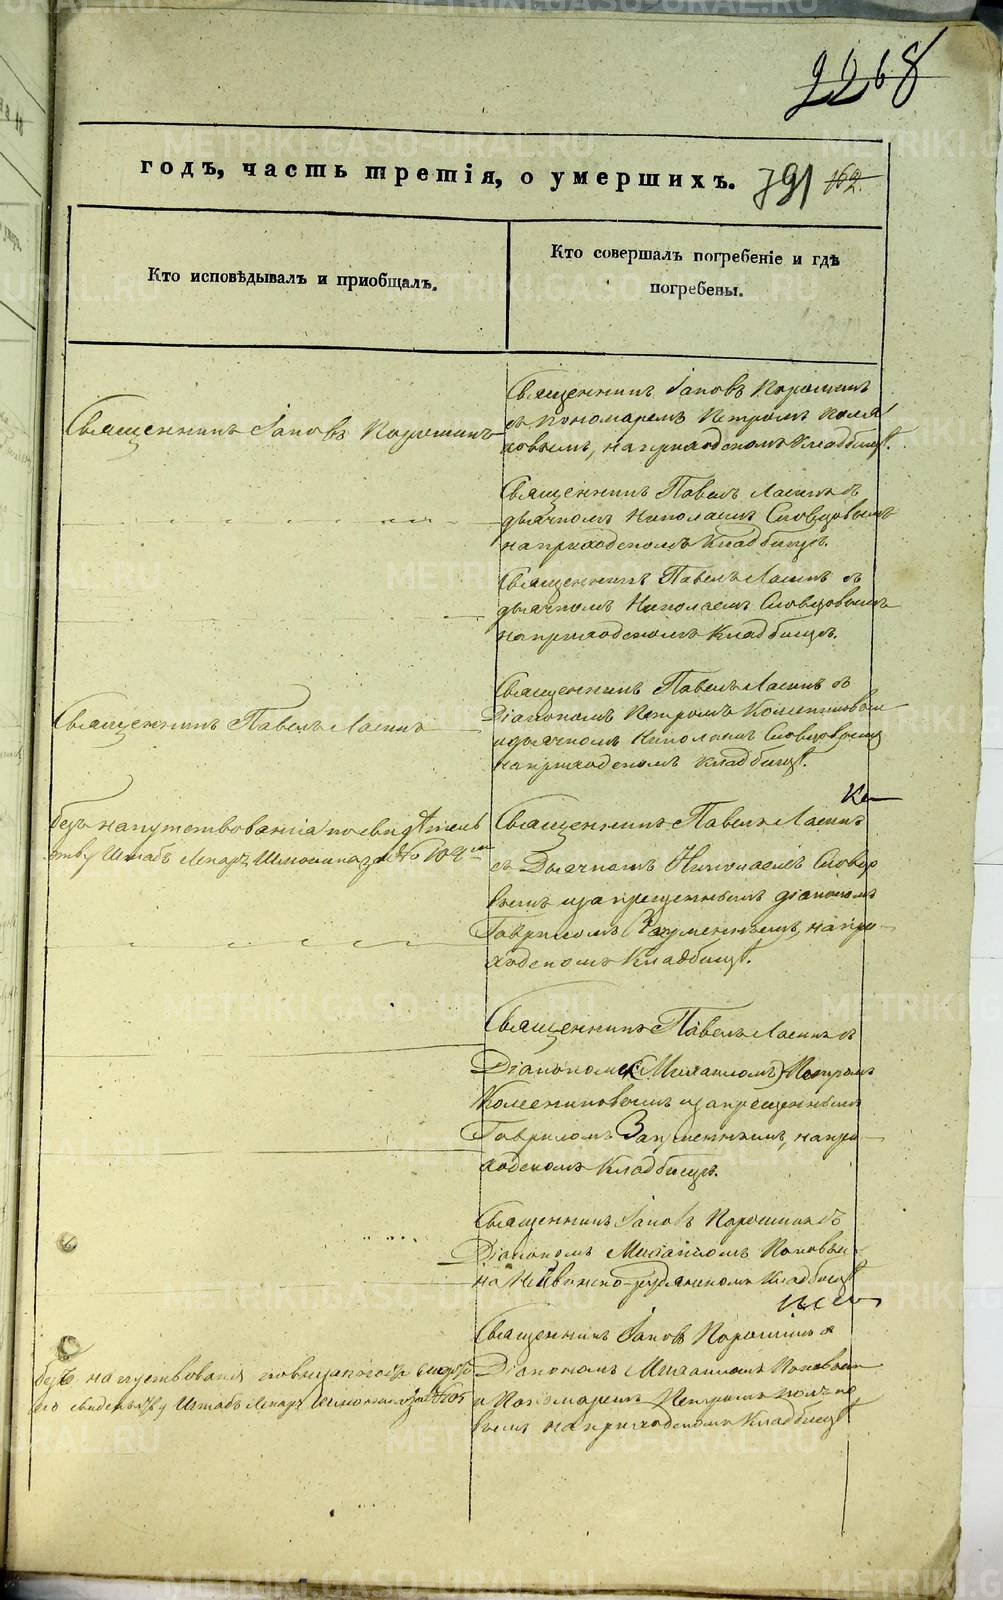 2268
годъ, часть третія, о умершихъ. 791 162.
Кто исповѣдывалъ и приобщалъ.
Кто совершалъ погребеніе и гдѣ
погребены.
Священникъ Іаковъ Порошинъ
Священникъ Іаковъ Порошинъ
съ пономаремъ Петромъ Поля
ковымъ, на приходскомъ кладбищѣ.
Священникъ Павелъ Ласинъ съ
дьячкомъ Николаемъ Словцовымъ
на приходскомъ кладбищѣ.
Священникъ Павелъ Ласинъ съ
дьячкомъ Николаемъ Словцовымъ
на приходскомъ кладбищѣ.
Священникъ Павелъ Ласинъ
Священникъ Павелъ Ласинъ съ
Діакономъ Петромъ
и дьячкомъ Николаемъ Словцовымъ
на приходскомъ кладбищѣ.
безъ напутствованія по свидѣтель
ству Штабъ Лекаря за №
Священникъ Павелъ Ласинъ
съ Дьячкомъ Николаемъ Словцо
вымъ и запрещеннымъ діакономъ
Гавриломъ на при-
ходскомъ кладбищѣ.
Священникъ Павелъ Ласинъ съ
Діакономъ (Михаиломъ) Петромъ
и запрещеннымъ
Гавриломъ на при-
ходскомъ кладбищѣ.
Священникъ Іаковъ Порошинъ съ
Діакономъ Михаиломъ Поповымъ
на Нейвинско-рудянскомъ кладбищѣ
безъ напутствованія
по свидетельству Штабъ Лекаря за №105
Священникъ Іаковъ Порошинъ с
Діакономъ Михаиломъ Поповым
и Пономаремъ Петромъ Поляко
вымъ на приходскомъ кладбищѣ.
METRIKI.GASO-URAL.RU